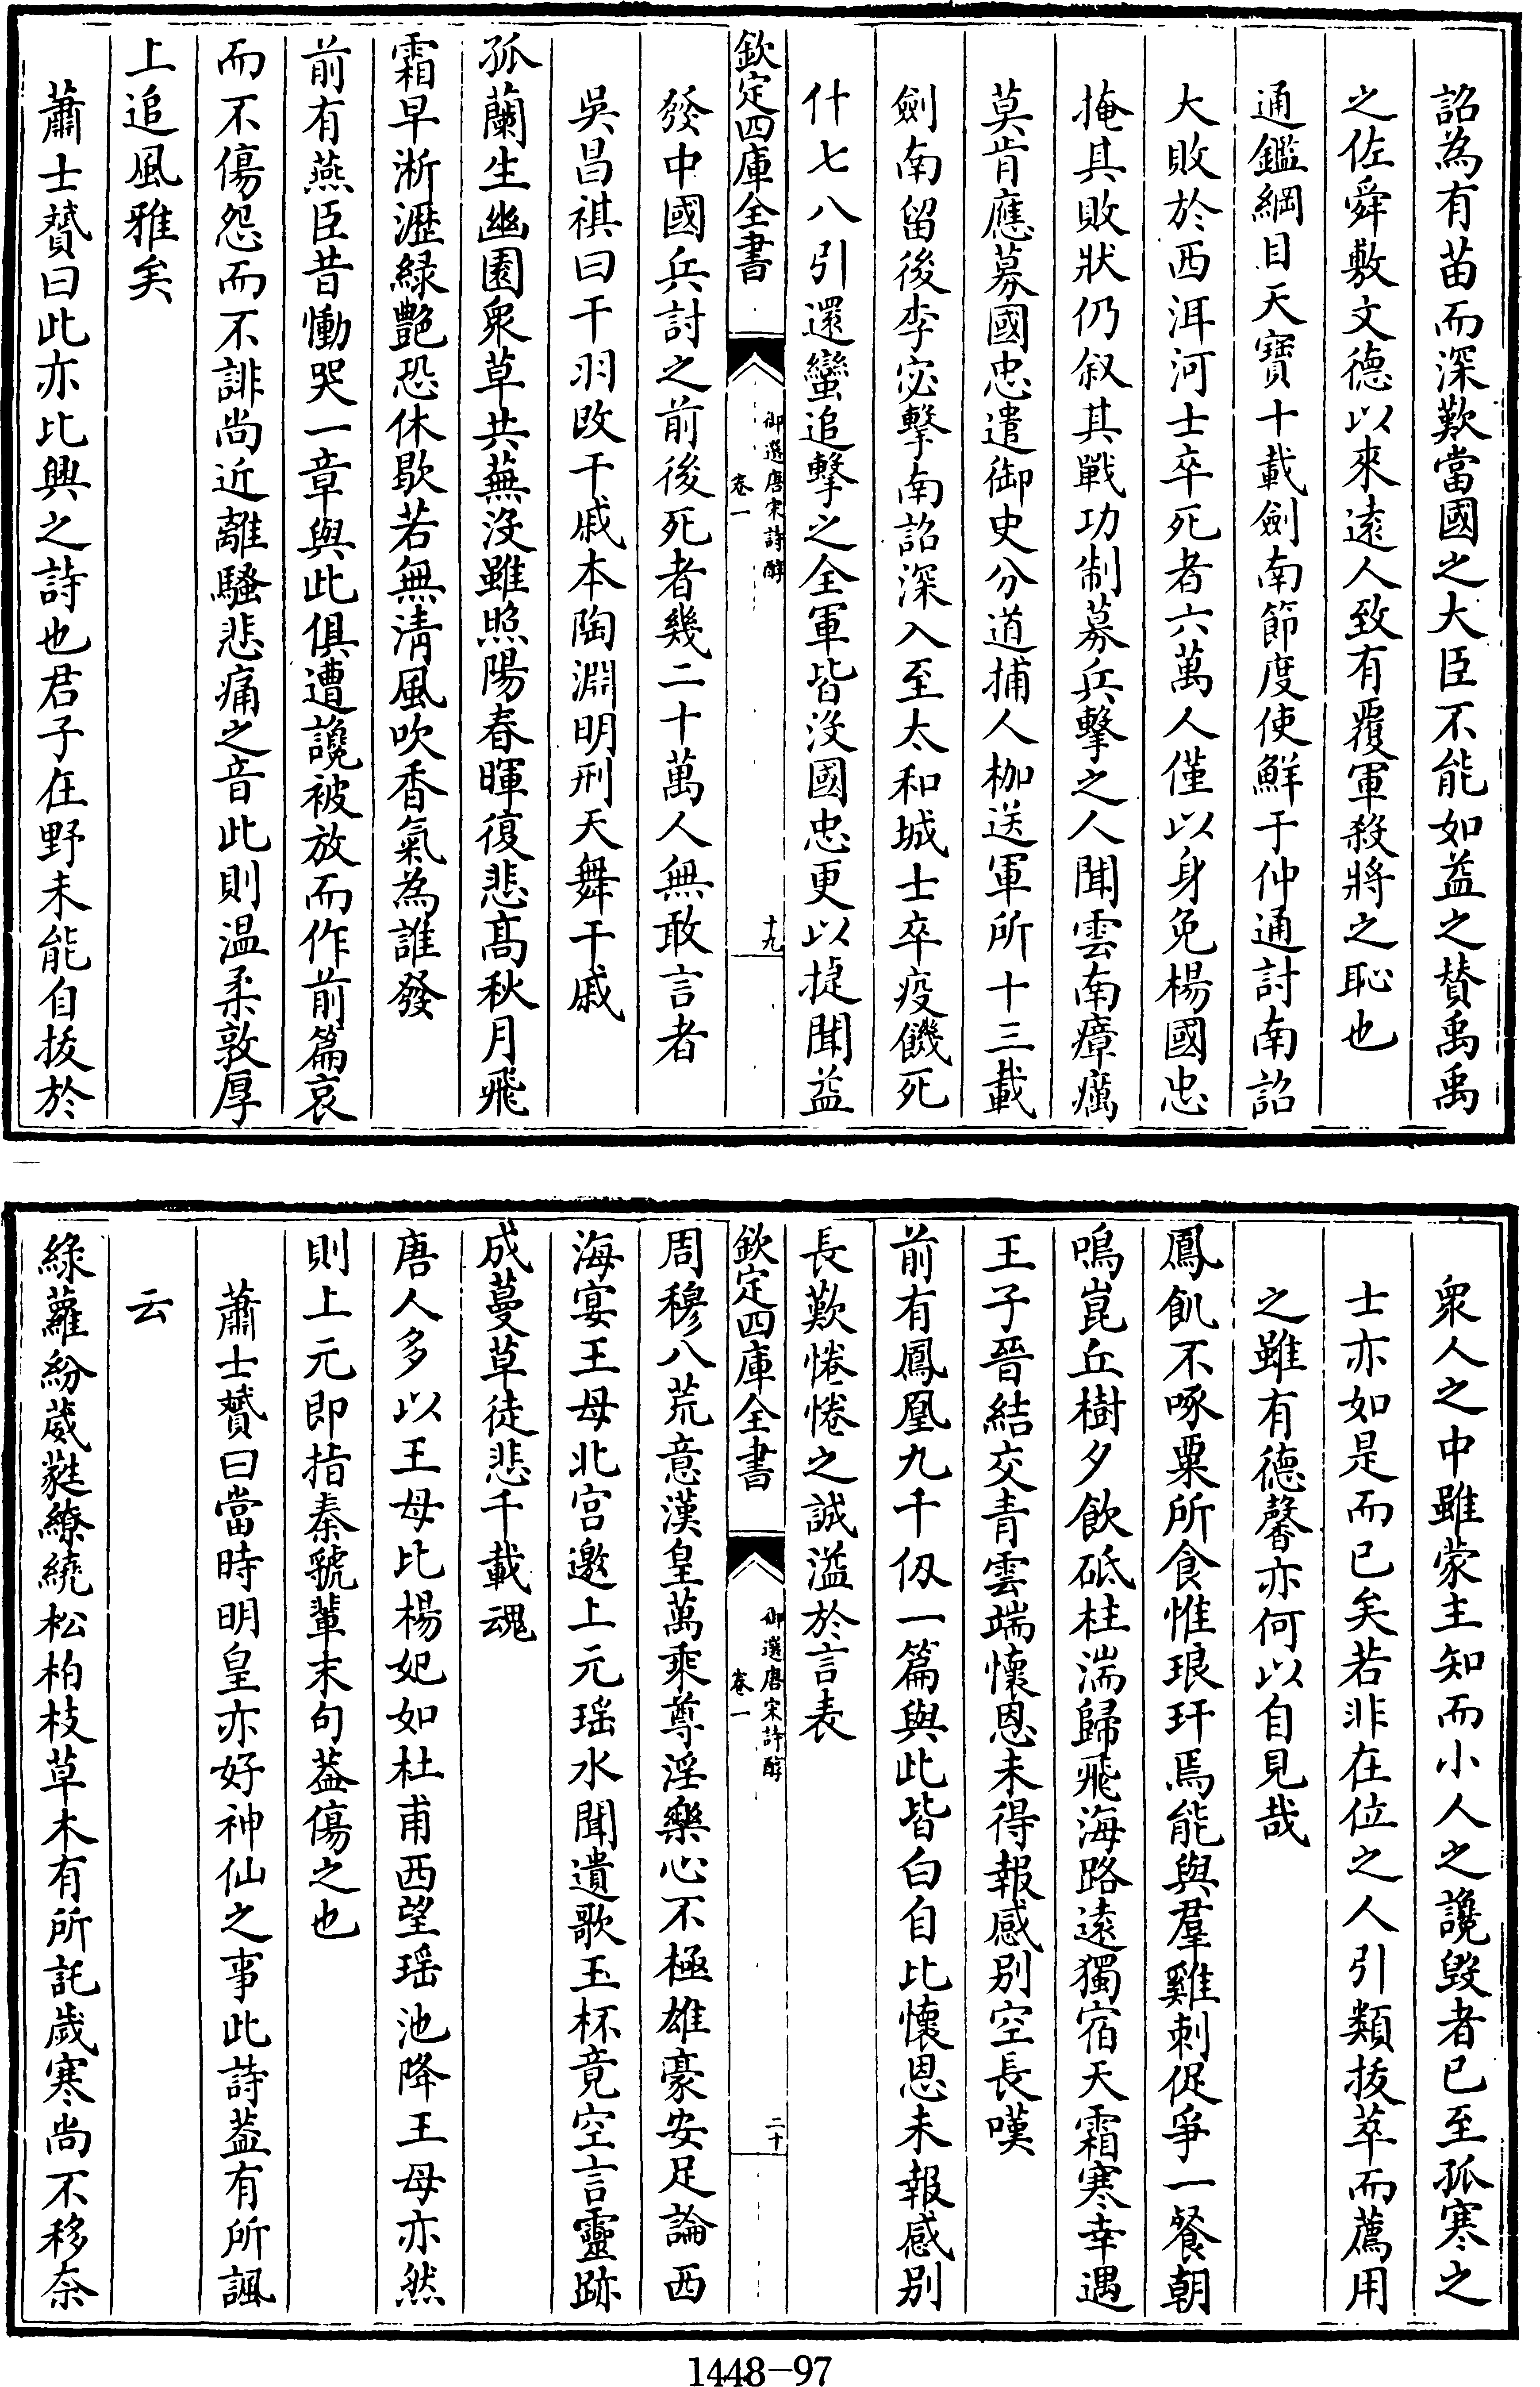 詔為有苗而深歎當國之大臣不能如益之賛禹禹
之佐舜敷文德以來遠人致有覆軍殺將之恥也
通鑑綱目天寶十載劍南節度使鮮于仲通討南詔
大敗於西洱河士卒死者六萬人僅以身免楊國忠
掩其敗狀仍叙其戰功制募兵擊之人聞雲南瘴癘
莫肯應募國忠遣御史分道捕人枷送軍所十三載
劍南留後李宓擊南詔深入至太和城士卒疫饑死
什七八引還蠻追擊之全軍皆没國忠更以捷聞益
欽定四庫全書
御選唐宋詩醇
卷一
十九
發中國兵討之前後死者幾二十萬人無敢言者
吳昌祺曰干羽改干戚本陶淵明刑天舞干戚
孤蘭生幽園衆草共蕪没雖照陽春暉復悲髙秋月飛
霜早淅瀝緑艶恐休歇若無清風吹香氣為誰發
前有燕臣昔慟哭一章與此俱遭讒被放而作前篇哀
而不傷怨而不誹尚近離騷悲痛之音此則温柔敦厚
上追風雅矣
蕭士贇曰此亦比興之詩也君子在野未能自拔於
衆人之中雖蒙主知而小人之讒毁者已至孤寒之
士亦如是而已矣若非在位之人引類拔萃而薦用
之雖有德馨亦何以自見哉
鳳飢不啄粟所食惟琅玕焉能與羣雞刺促爭一餐朝
鳴崑丘樹夕飲砥柱湍歸飛海路遠獨宿天霜寒幸遇
王子晉結交青雲端懷恩未得報感别空長嘆
前有鳳凰九千仭一篇與此皆白自比懷恩未報感别
長歎惓惓之誠溢於言表
欽定四庫全書
御選唐宋詩醇
卷一
二十
周穆八荒意漢皇萬乘尊淫樂心不極雄豪安足論西
海宴王母北宫邀上元瑶水聞遺歌玉杯竟空言靈跡
成蔓草徒悲千載魂
唐人多以王母比楊妃如杜甫西望瑶池降王母亦然
則上元即指秦虢輩末句葢傷之也
蕭士贇曰當時明皇亦好神仙之事此詩葢有所諷
云
緑蘿紛葳蕤繚繞松柏枝草木有所託歲寒尚不移奈
1448-97